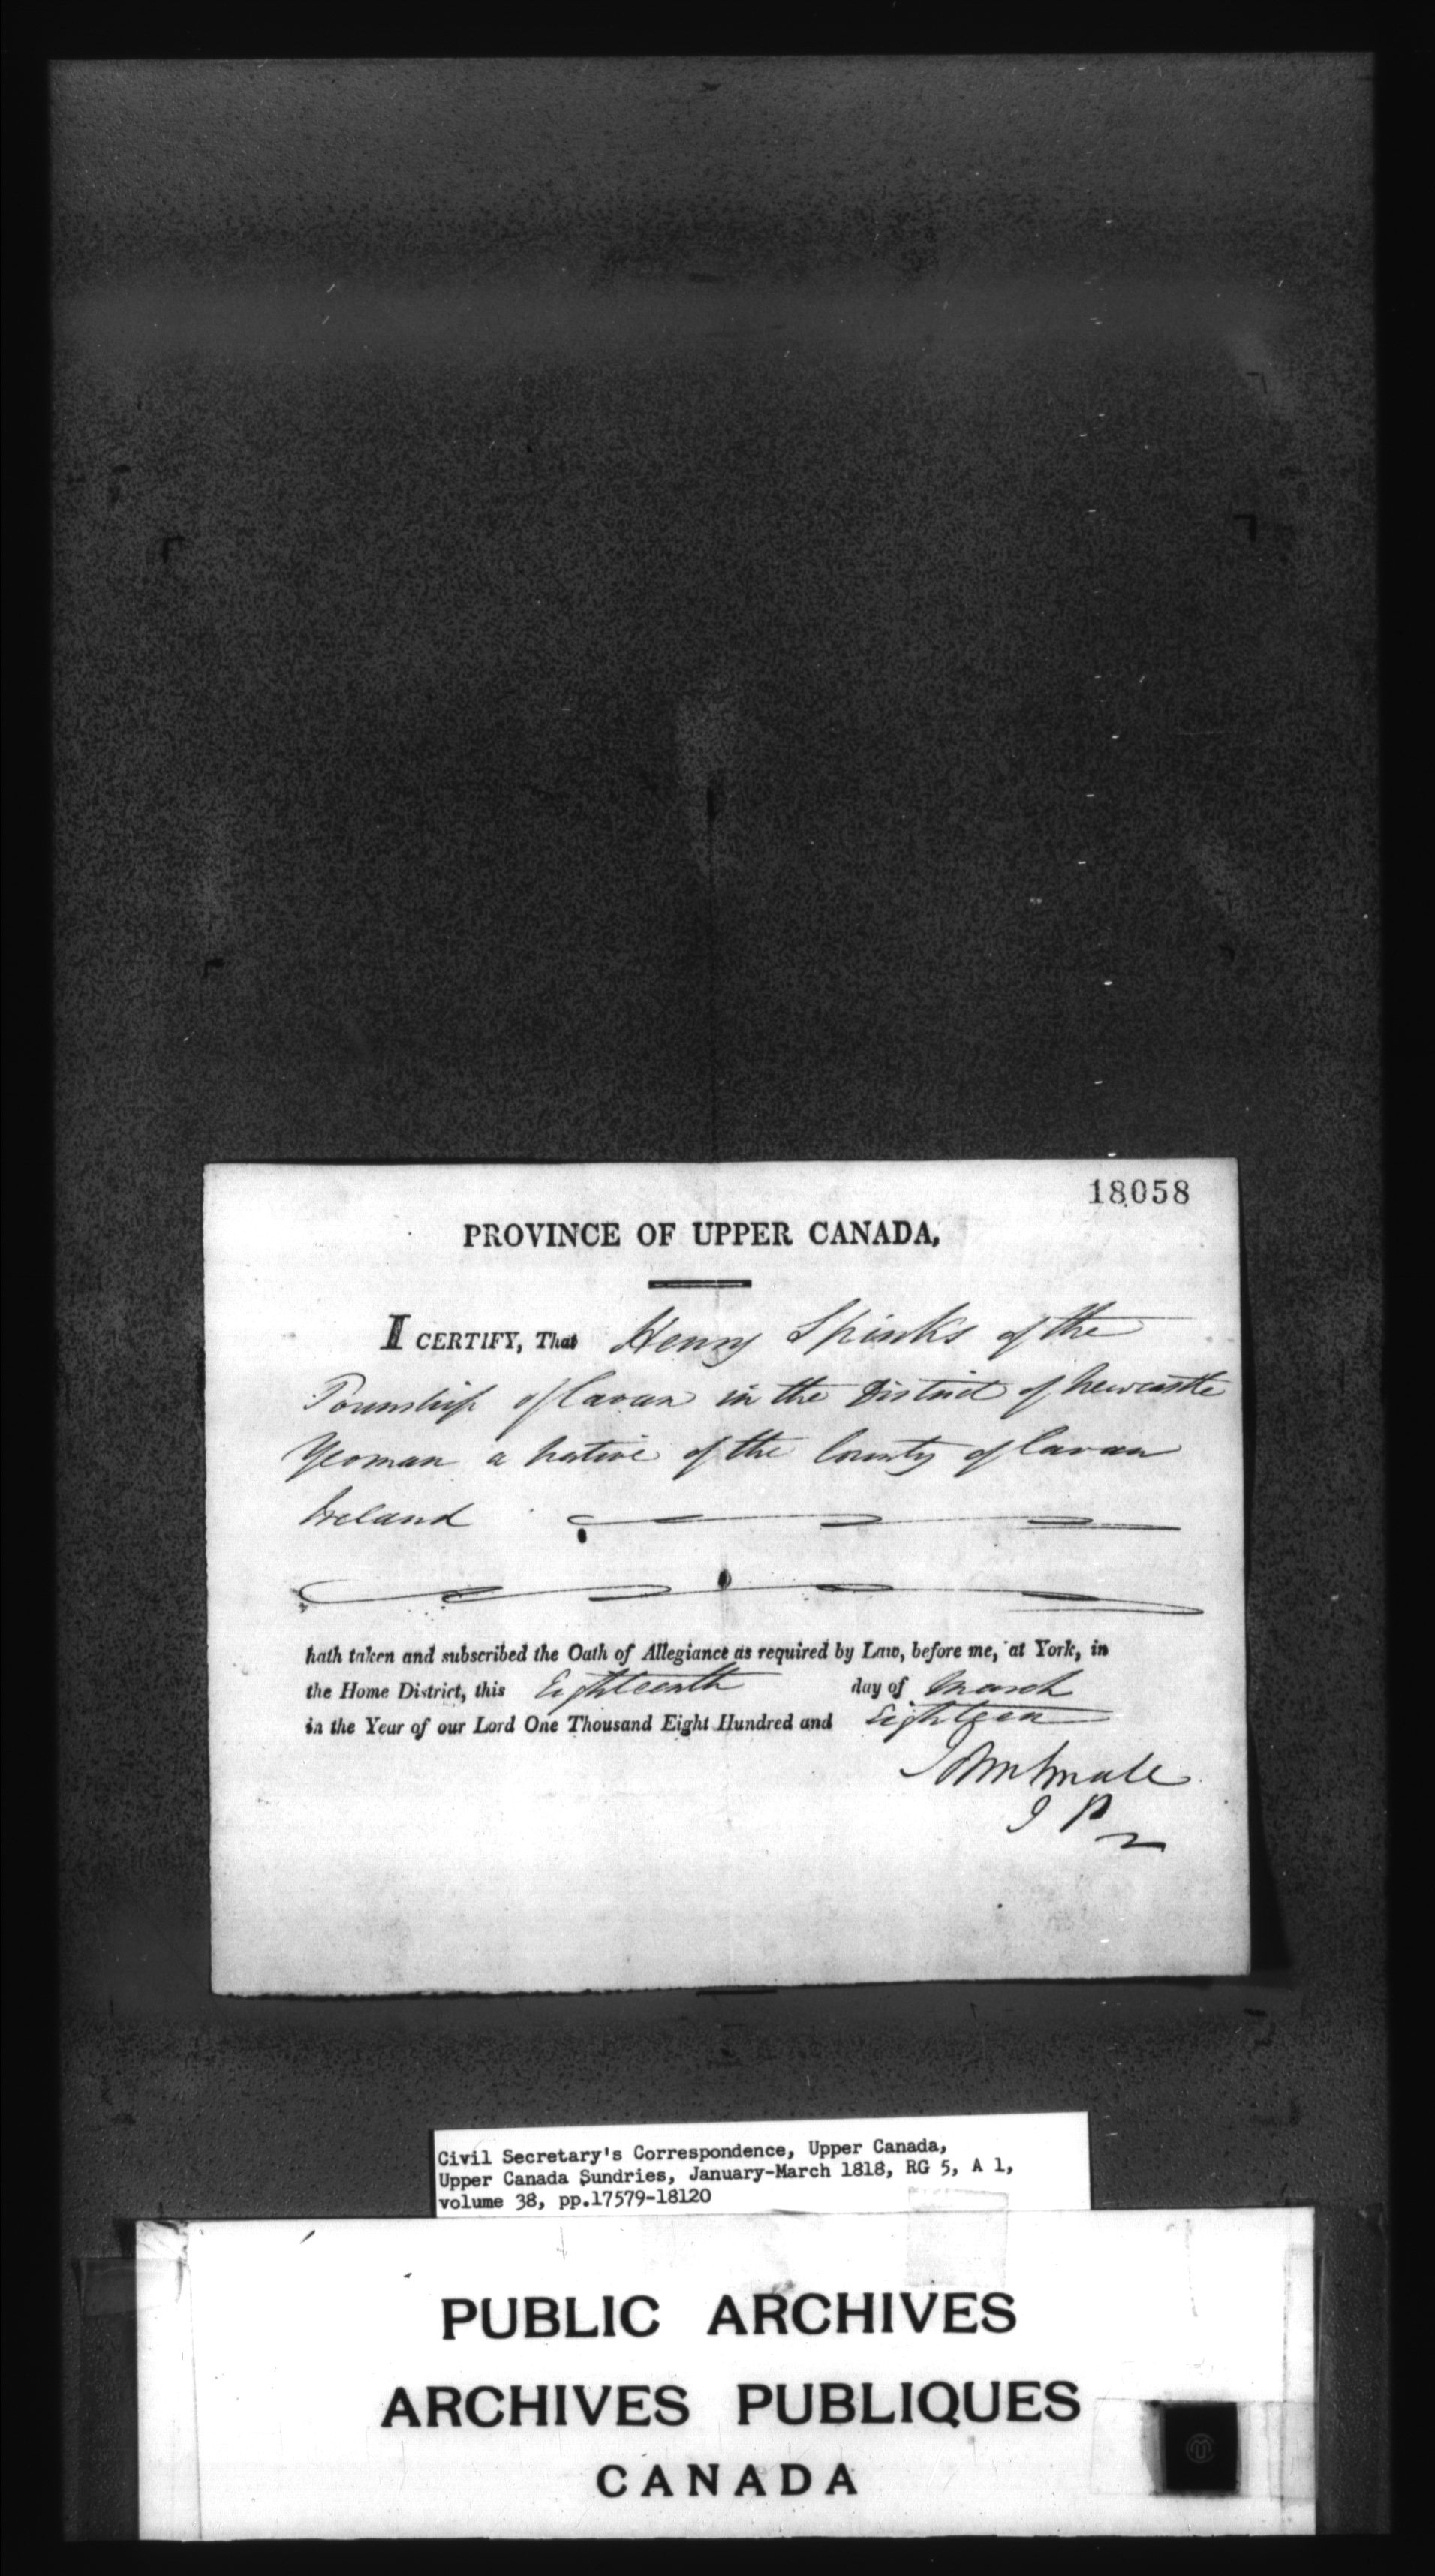 18058
PROVINCE OF UPPER CANADA,
I CERTIFY, That Henry Spinks of the
Township of Cavan in the District of Newcastle
Yeoman a native of the County of Cavan
Ireland
hath taken and subscribed the Oath of Allegiance as required by Law, before me, at York, in
the Home District, this Eighteenth day of March
in the Year of our Lord One Thousand Eight Hundred and Eighteen
John Small
J P
Civil Secretary's Correspondence, Upper Canada,
Upper Canada Sundries, January-March 1818, RG 5, A 1,
volume 38, pp.17579-18120
PUBLIC ARCHIVES
ARCHIVES PUBLIQUES
CANADA